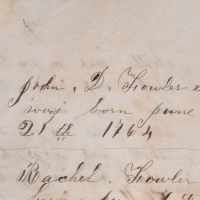 john . D. Fowler
was born june
21 th 1764
Rachel. Fowler